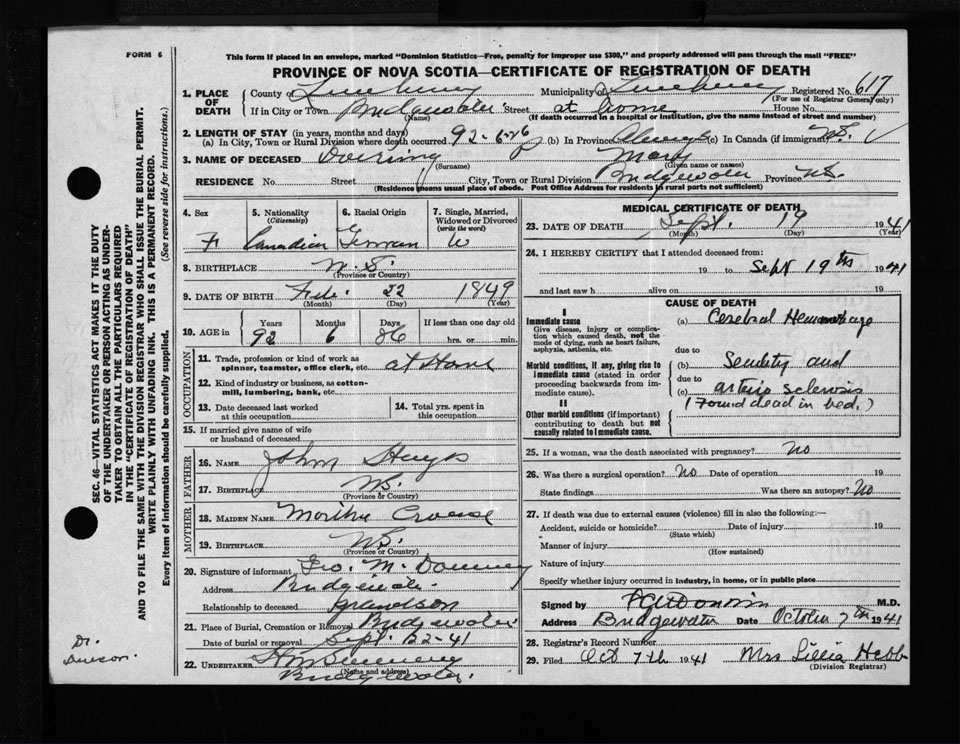 FORM 6
This form if placed in an envelope, marked "Dominion Statistics—Free, penalty for improper use $300," and properly addressed will pass through the mail "FREE"
PROVINCE OF NOVA SCOTIA—CERTIFICATE OF REGISTRATION OF DEATH
1. PLACE OF DEATH
County of Lunenburg Municipality of Lunenburg Registered No. 617
(For use of Registrar General only)
If in City or Town Bridgewater Street at home House No.
(Name) (If death occurred in a hospital or institution, give the name instead of street and number)
2. LENGTH OF STAY (in years, months and days)
(a) In City, Town or Rural Division where death occurred 92-6-26 (b) In Province Always (c) In Canada (if immigrant) N.S.
3. NAME OF DECEASED Mary
(Surname) (Given name or names)
RESIDENCE No. Street City, Town or Rural Division Bridgewater Province N.S.
(Residence means usual place of abode. Post Office Address for residents in rural parts not sufficient)
4. Sex 5. Nationality (Citizenship) 6. Racial Origin 7. Single, Married, Widowed or Divorced (write the word)
F Canadian German W
8. BIRTHPLACE N.S.
(Province or Country)
9. DATE OF BIRTH Feb. 22 1849
(Month) (Day) (Year)
10. AGE in Years Months Days If less than one day old
92 6 26 hrs. or min.
OCCUPATION
11. Trade, profession or kind of work as spinner, teamster, office clerk, etc. at Home
12. Kind of industry or business, as cotton-mill, lumbering, bank, etc.
13. Date deceased last worked at this occupation 14. Total yrs. spent in this occupation
15. If married give name of wife or husband of deceased
FATHER
16. NAME John
17. BIRTHPLACE N.S.
(Province or Country)
MOTHER
18. MAIDEN NAME Crouse
19. BIRTHPLACE N.S.
(Province or Country)
20. Signature of informant Geo. M.
Address Bridgewater
Relationship to deceased grandson
21. Place of Burial, Cremation or Removal Bridgewater
Date of burial or removal Sept. 22-41
22. UNDERTAKER
(Name and address)
Bridgewater.
MEDICAL CERTIFICATE OF DEATH
23. DATE OF DEATH Sept. 19 1941
(Month) (Day) (Year)
24. I HEREBY CERTIFY that I attended deceased from:
19 to Sept 19th 1941
and last saw h alive on 19
CAUSE OF DEATH
I
Immediate cause
Give disease, injury or complication which caused death, not the mode of dying, such as heart failure, asphyxia, asthenia, etc.
(a) Cerebral Hemorrhage
due to
Morbid conditions, if any, giving rise to immediate cause (stated in order proceeding backwards from immediate cause).
(b) Senility and
due to
(c) arterio sclerosis
(Found dead in bed.)
II
Other morbid conditions (if important) contributing to death but not causally related to immediate cause.
25. If a woman, was the death associated with pregnancy? No
26. Was there a surgical operation? No Date of operation 19
State findings Was there an autopsy? No
27. If death was due to external causes (violence) fill in also the following:—
Accident, suicide or homicide? Date of injury 19
(State which)
Manner of injury
(How sustained)
Nature of injury
Specify whether injury occurred in industry, in home, or in public place
Signed by M.D.
Address Bridgewater Date October 7th 1941
28. Registrar's Record Number
29. Filed Oct 7th 1941 Mrs Lillia Hebb
(Division Registrar)
SEC. 46—VITAL STATISTICS ACT MAKES IT THE DUTY
OF THE UNDERTAKER OR PERSON ACTING AS UNDER-
TAKER TO OBTAIN ALL THE PARTICULARS REQUIRED
IN THE "CERTIFICATE OF REGISTRATION OF DEATH"
AND TO FILE THE SAME WITH THE DIVISION REGISTRAR WHO SHALL ISSUE THE BURIAL PERMIT.
WRITE PLAINLY WITH UNFADING INK. THIS IS A PERMANENT RECORD.
Every item of information should be carefully supplied. (See reverse side for instructions.)
Dr.